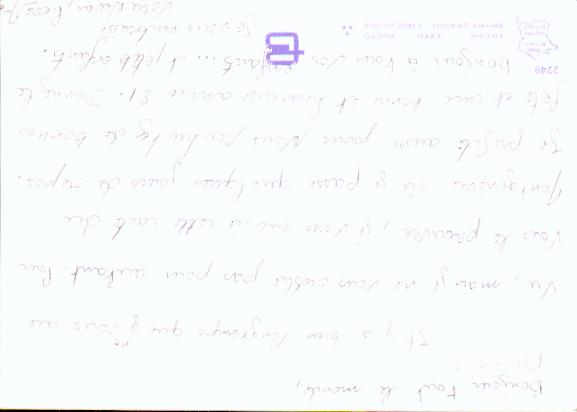 Bonjour tout le monde,
Il y a bien longtemps que je ne vous ai
vu, mais je ne vous oublie pas pour autant. Pour
vous le prouver, je vous envoie cette carte du
Montgenèvre où je passe quelques jours de repos.
Je profite aussi pour vous souhaiter de bonnes
fêtes et une bonne et heureuse année 81.
bonjour à tous vos enfants... et petits enfants.
Je vous embrasse.
2249
EDITIONS EXPO PHOTO